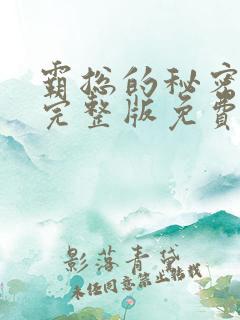 霸总的秘密
完整版免费
影落青黛
未经同意禁止转载